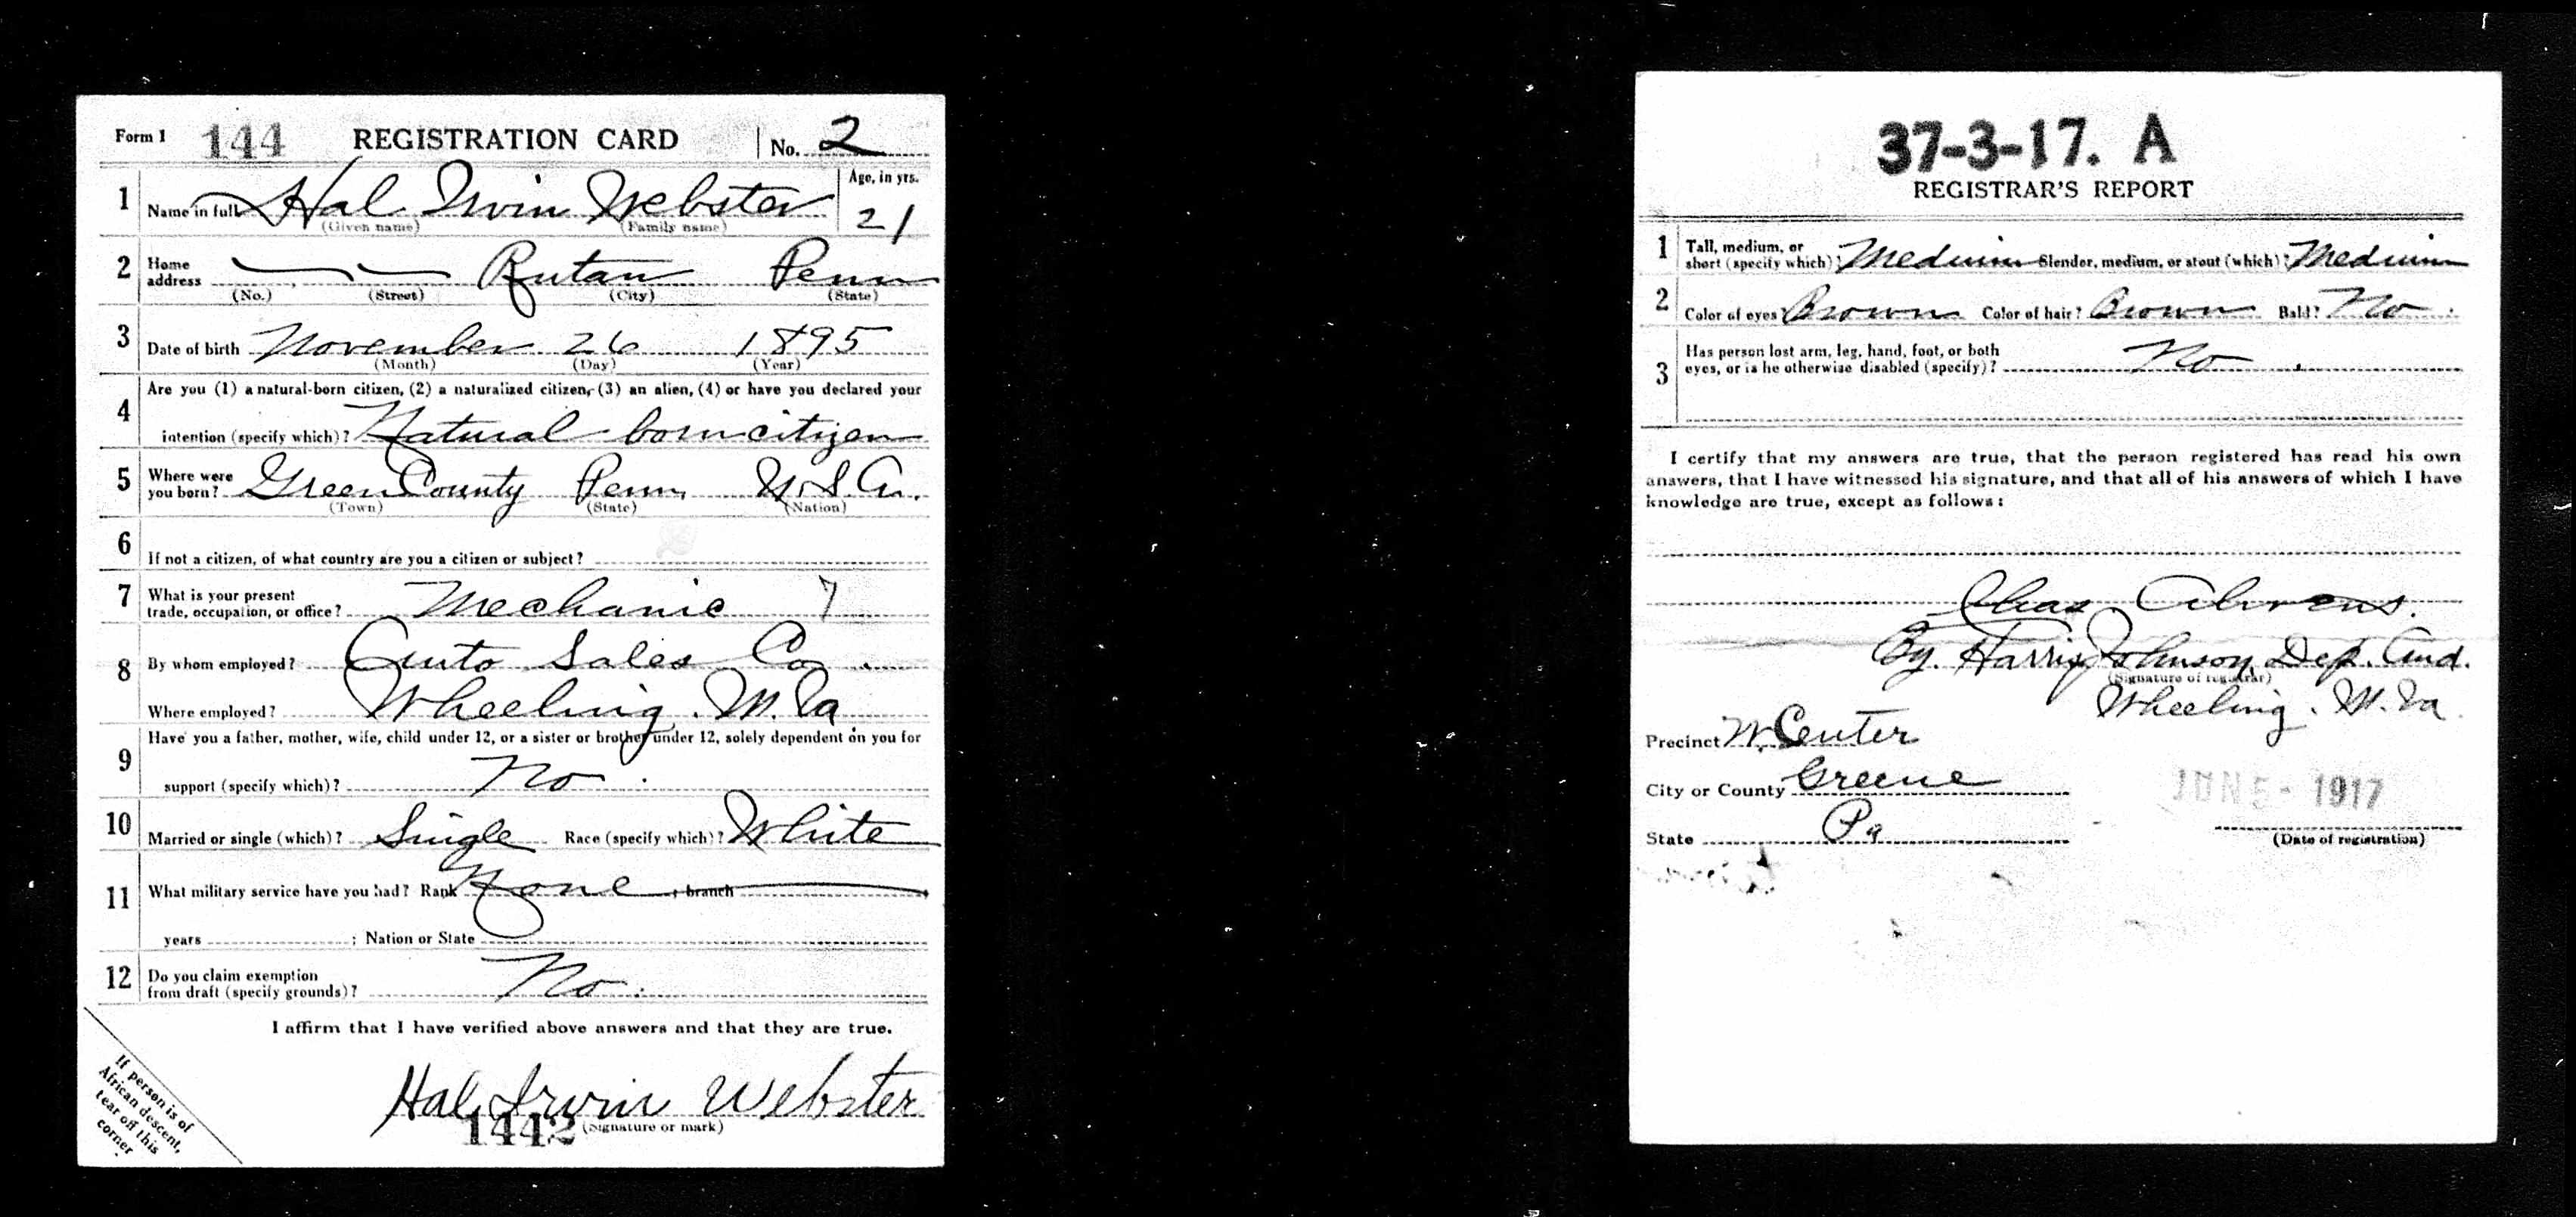 Form 1 144 REGISTRATION CARD No. 2
1 Name in full Hal Irvin Webster Age, in yrs. 21
(Given name) (Family name)
2 Home address Rutan Penn
(No.) (Street) (City) (State)
3 Date of birth November 26 1895
(Month) (Day) (Year)
Are you (1) a natural-born citizen, (2) a naturalized citizen, (3) an alien, (4) or have you declared your
4 intention (specify which)? Natural born citizen
5 Where were you born? Green County Penn, U.S.A.
(Town) (State) (Nation)
6 If not a citizen, of what country are you a citizen or subject?
7 What is your present trade, occupation, or office? Mechanic 7
8 By whom employed? Auto Sales Co.
Where employed? Wheeling. W. Va
Have you a father, mother, wife, child under 12, or a sister or brother under 12, solely dependent on you for
9 support (specify which)? No.
10 Married or single (which)? Single Race (specify which)? White
11 What military service have you had? Rank None ; branch
years ; Nation or State
12 Do you claim exemption from draft (specify grounds)? No.
I affirm that I have verified above answers and that they are true.
Hal Irvin Webster
1442 (Signature or mark)
If person is of
African descent,
tear off this
corner
37-3-17. A
REGISTRAR'S REPORT
1 Tall, medium, or short (specify which)? Medium Slender, medium, or stout (which)? Medium
2 Color of eyes? Brown Color of hair? Brown Bald? No.
3 Has person lost arm, leg, hand, foot, or both
eyes, or is he otherwise disabled (specify)? No.
I certify that my answers are true, that the person registered has read his own
answers, that I have witnessed his signature, and that all of his answers of which I have
knowledge are true, except as follows:
Chas Ahrens.
By. Harris Johnson, Dep. Aud.
(Signature of registrar)
Wheeling. W. Va.
Precinct W. Center
City or County Greene
JUN 5 - 1917
State Pa
(Date of registration)